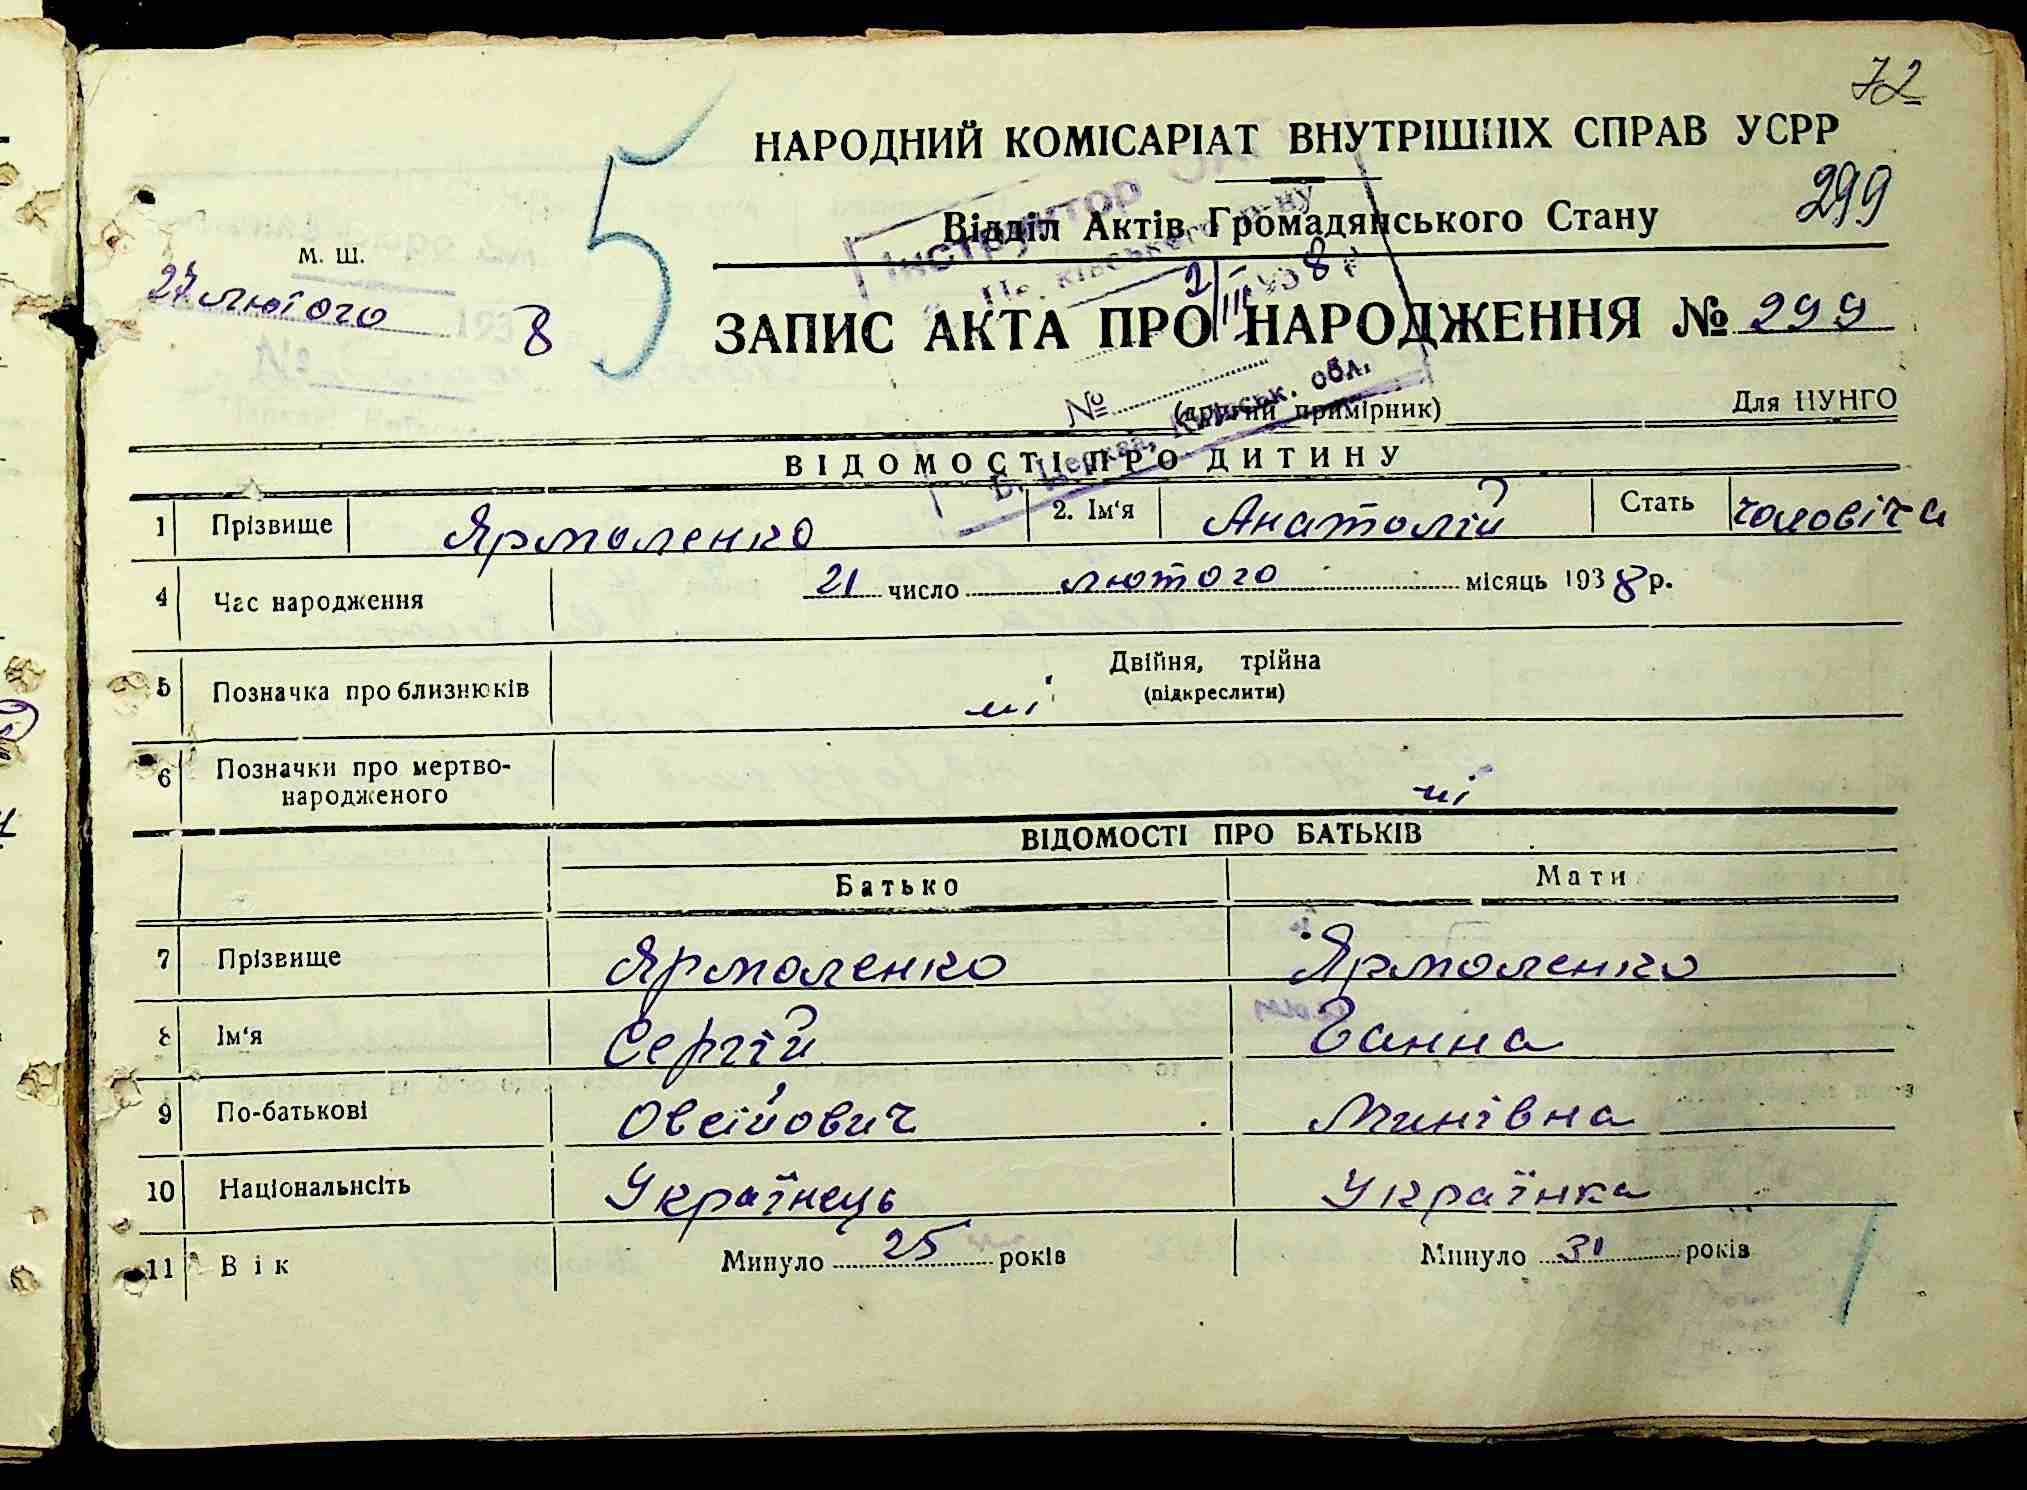 72
НАРОДНИЙ КОМІСАРІАТ ВНУТРІШНІХ СПРАВ УСРР
299
Відділ Актів Громадянського Стану
Інструктор
ківського р-ну
м. ш.
27 лютого 193 8
5
2/III 1938 р
ЗАПИС АКТА ПРО НАРОДЖЕННЯ № 299
№
(другий примірник)
Для ЦУНГО
Б. Церква, Київськ. обл.
ВІДОМОСТІ ПРО ДИТИНУ
1 Прізвище Ярмоленко 2. Ім‘я Анатолій Стать чоловіча
4 Час народження 21 число лютого місяць 1938 р.
5 Позначка про близнюків ні Двійня, трійна
(підкреслити)
6 Позначки про мертво-
народженого ні
ВІДОМОСТІ ПРО БАТЬКІВ
Батько Мати
7 Прізвище Ярмоленко Ярмоленко
8 Ім‘я Сергій Ганна
9 По-батькові Овсійович Минівна
10 Національнсіть Українець Українка
11 Вік Минуло 25 років Минуло 31 років